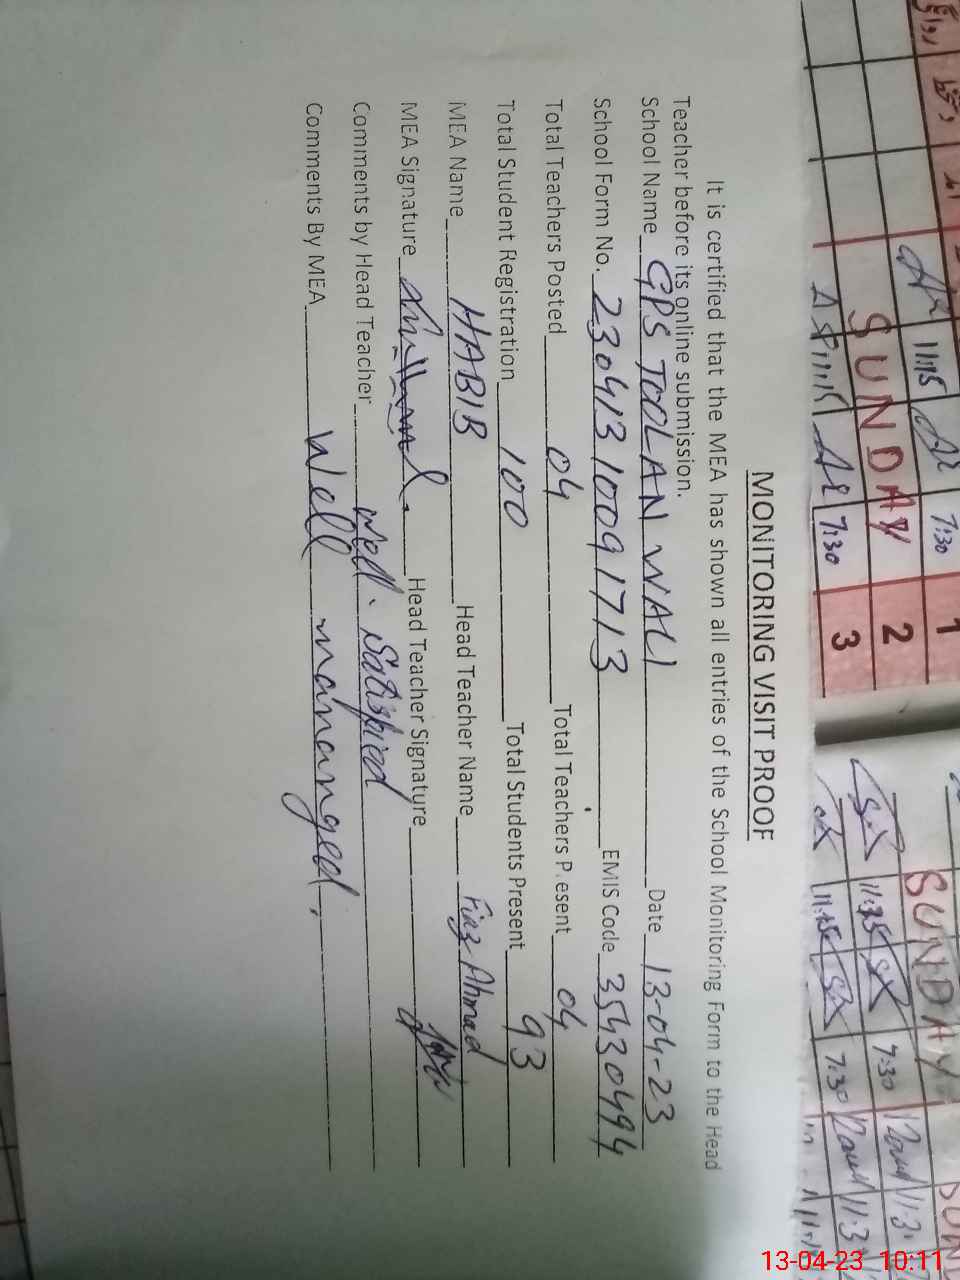 MONITORING VISIT PROOF
It is certified that the MEA has shown all entries of the School Monitoring Form to the Head
Teacher before its online submission.
School Name GPS TOOLAN WALI Date 13-04-23
School Form No. 230413 1009 1713 EMIS Code 35430494
Total Teachers Posted 04 Total Teachers Present 04
Total Student Registration 100 Total Students Present 93
MEA Name HABIB Head Teacher Name Fiaz Ahmad
MEA Signature Head Teacher Signature
Comments by Head Teacher Well. Satisfied
Comments By MEA Well mananged.
11:15 7:30 1
SUNDAY 2
7:30 3
SUNDAY
11:35 7:30
11:45 7:30
13-04-23 10:11